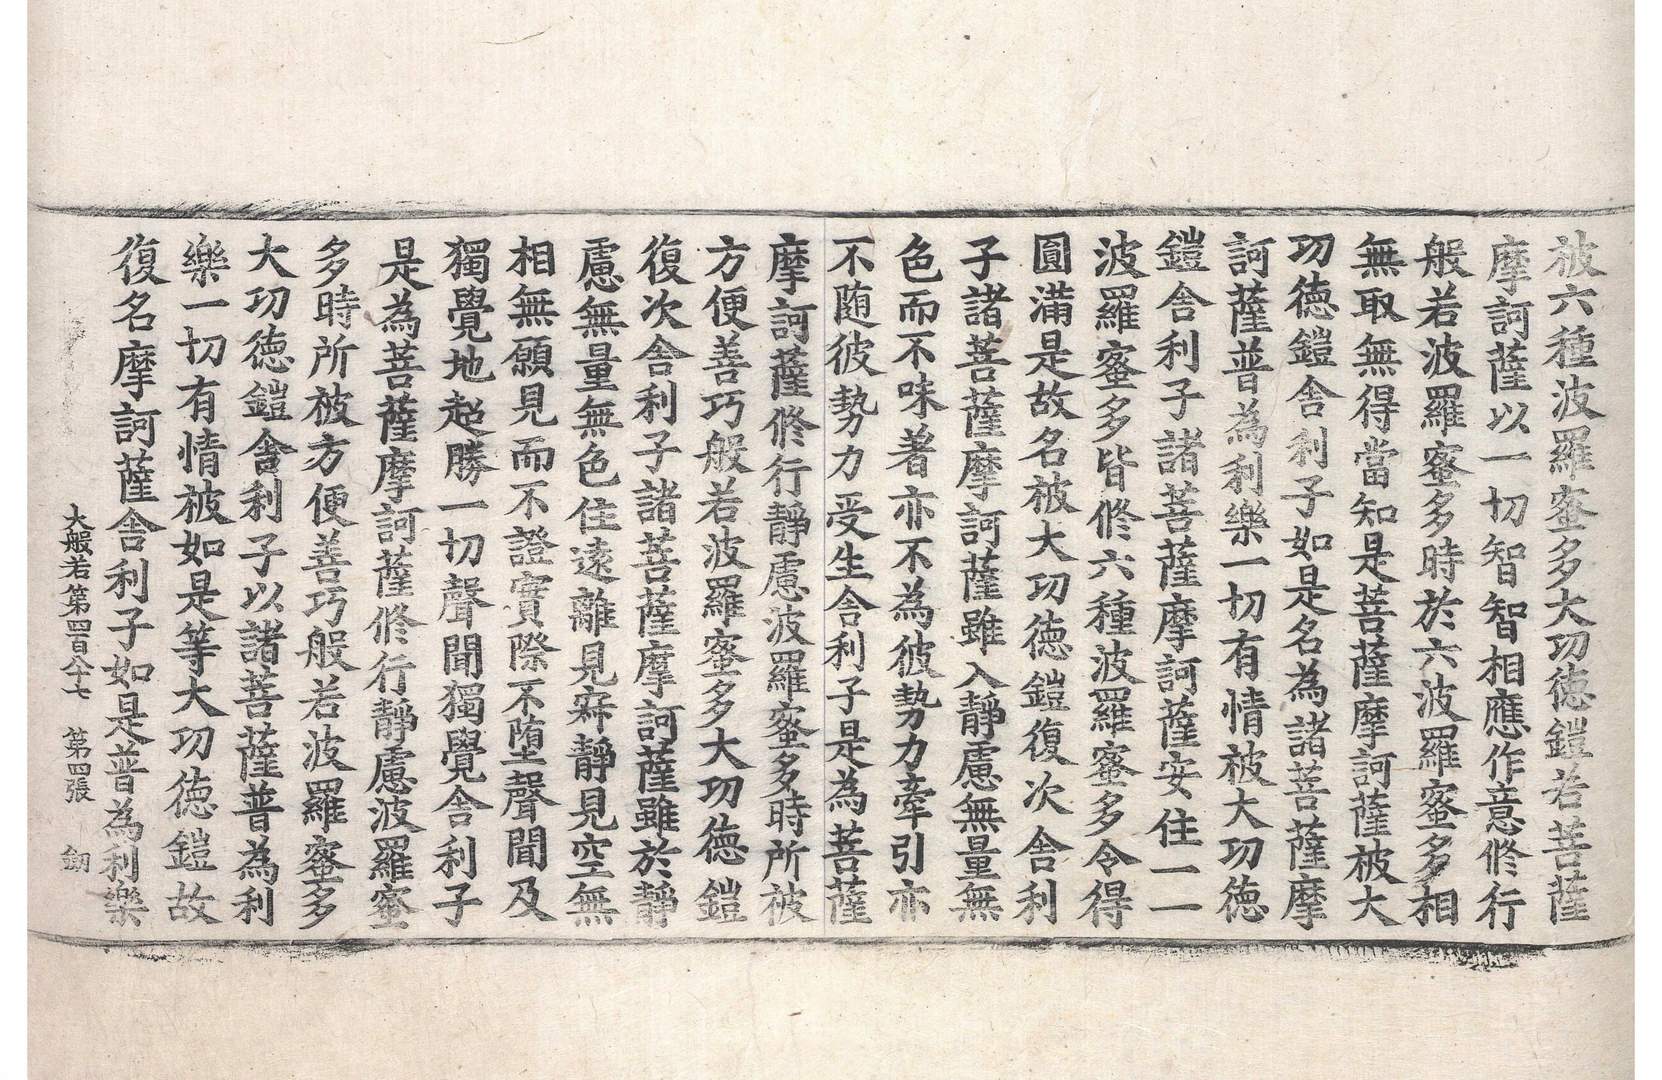 被六種波羅蜜多大功德鎧若菩薩
摩訶薩以一切智智相應作意修行
般若波羅蜜多時於六波羅蜜多相
無取無得當知是菩薩摩訶薩被大
功德鎧舍利子如是名為諸菩薩摩
訶薩普為利樂一切有情被大功德
鎧舍利子諸菩薩摩訶薩安住一一
波羅蜜多皆修六種波羅蜜多令得
圓滿是故名被大功德鎧復次舍利
子諸菩薩摩訶薩雖入靜慮無量無
色而不味著亦不為彼勢力牽引亦
不隨彼勢力受生舍利子是為菩薩
摩訶薩修行靜慮波羅蜜多時所被
方便善巧般若波羅蜜多大功德鎧
復次舍利子諸菩薩摩訶薩雖於靜
慮無量無色住遠離見寂靜見空無
相無願見而不證實際不墮聲聞及
獨覺地超勝一切聲聞獨覺舍利子
是為菩薩摩訶薩修行靜慮波羅蜜
多時所被方便善巧般若波羅蜜多
大功德鎧舍利子以諸菩薩普為利
樂一切有情被如是等大功德鎧故
復名摩訶薩舍利子如是普為利樂
大般若第四百八十七 第四張 劒